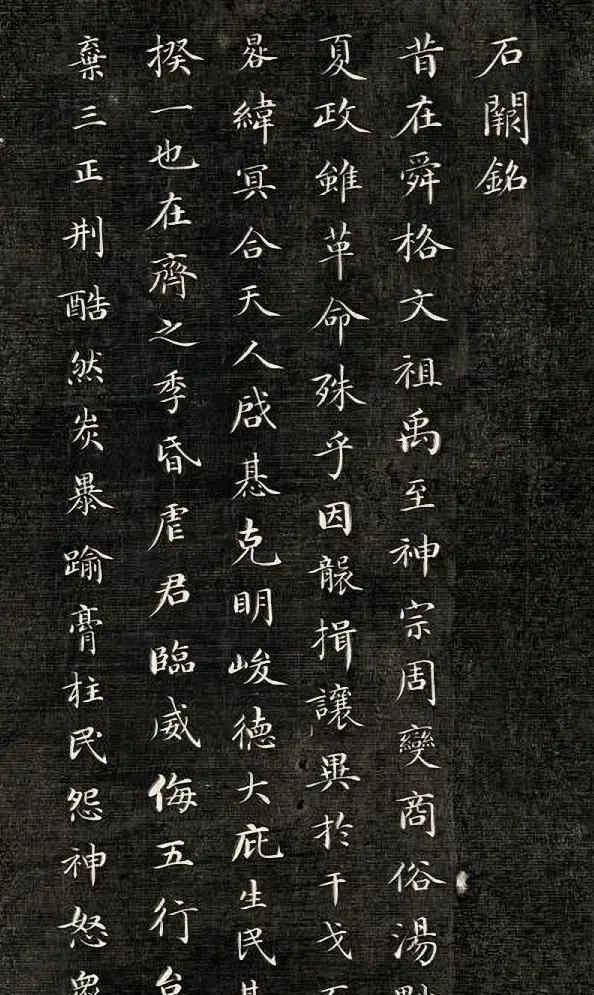 石闕銘
昔在舜格文祖禹至神宗周變商俗湯
夏政雖革命殊乎因襲揖讓異於干戈
晷緯冥合天人啟惎克明峻德大庇生民
揆一也在齊之季昏虐君臨威侮五行
棄三正刑酷然炭暴踰膏柱民怨神怒衆